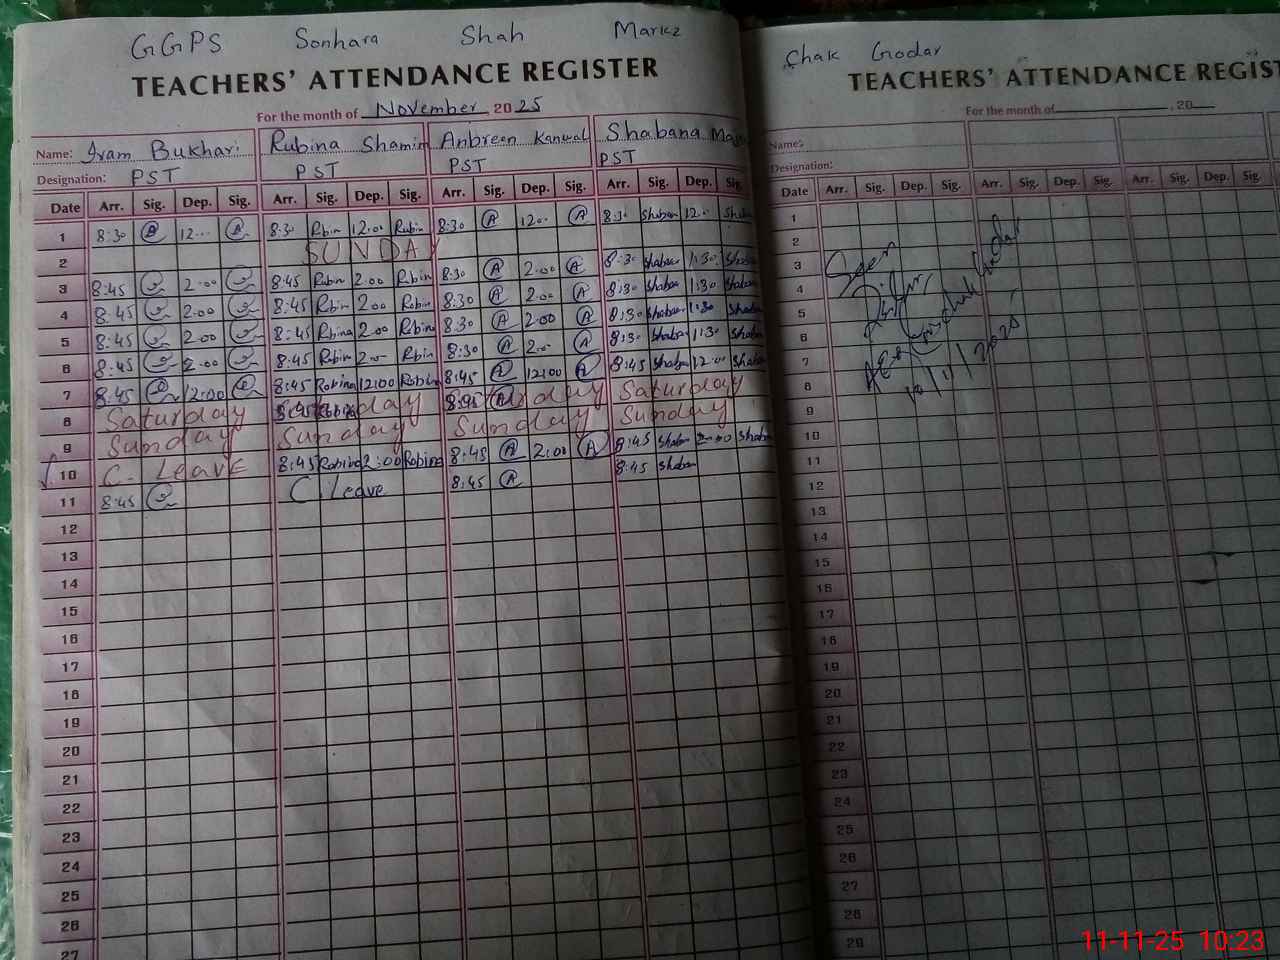 GGPS Sonhara Shah Markz
TEACHERS' ATTENDANCE REGISTER
For the month of November 2025
Name: Iram Bukhari Rubina Shamim Anbreen Kanwal Shabana
Designation: PST PST PST PST
Date Arr. Sig. Dep. Sig. Arr. Sig. Dep. Sig. Arr. Sig. Dep. Sig. Arr. Sig. Dep. Sig.
1 8:30 12.. 8:30 Rbin 12.00 Rubin 8:30 A 12.. A 8:30 Shaban 12.. Shaban
2 SUNDAY
3 8:45 2.00 8:45 Rubin 2.00 Rubin 8:30 A 2.00 A 8:30 Shaban 1:30 Shaban
4 8:45 2.00 8:45 Rubin 2.00 Rubin 8:30 A 2.00 A 8:30 Shaban 1:30 Shaban
5 8:45 2.00 8:45 Rbina 2.00 Rubin 8:30 A 2.00 A 8:30 Shaban 1:30 Shaban
6 8:45 2.00 8:45 Rubin 2.. Rbin 8:30 A 2.. A 8:30 Shaban 1:30 Shaban
7 8:45 12:00 8:45 Robina 12:00 Robina 8:45 A 12:00 A 8:45 Shaban 12.00 Shaban
8 Saturday 8:45 8:45 A Saturday
9 Sunday Sunday Sunday Sunday
10 C. Leave 8:45 Robina 2:00 Robina 8:45 A 2:00 A 8:45 Shaban 2:00 Shaban
11 8:45 C. Leave 8:45 A 8:45 Shaban
12
13
14
15
16
17
18
19
20
21
22
23
24
25
26
27
Chak Godar
TEACHERS' ATTENDANCE REGIST
For the month of , 20
Name:
Designation:
Date Arr. Sig. Dep. Sig. Arr. Sig. Dep. Sig. Arr. Sig. Dep. Sig.
1
2
3 Seen
4
5
6
7
8 10/11/2025
9
10
11
12
13
14
15
16
17
18
19
20
21
22
23
24
25
26
27
28
29
11-11-25 10:23